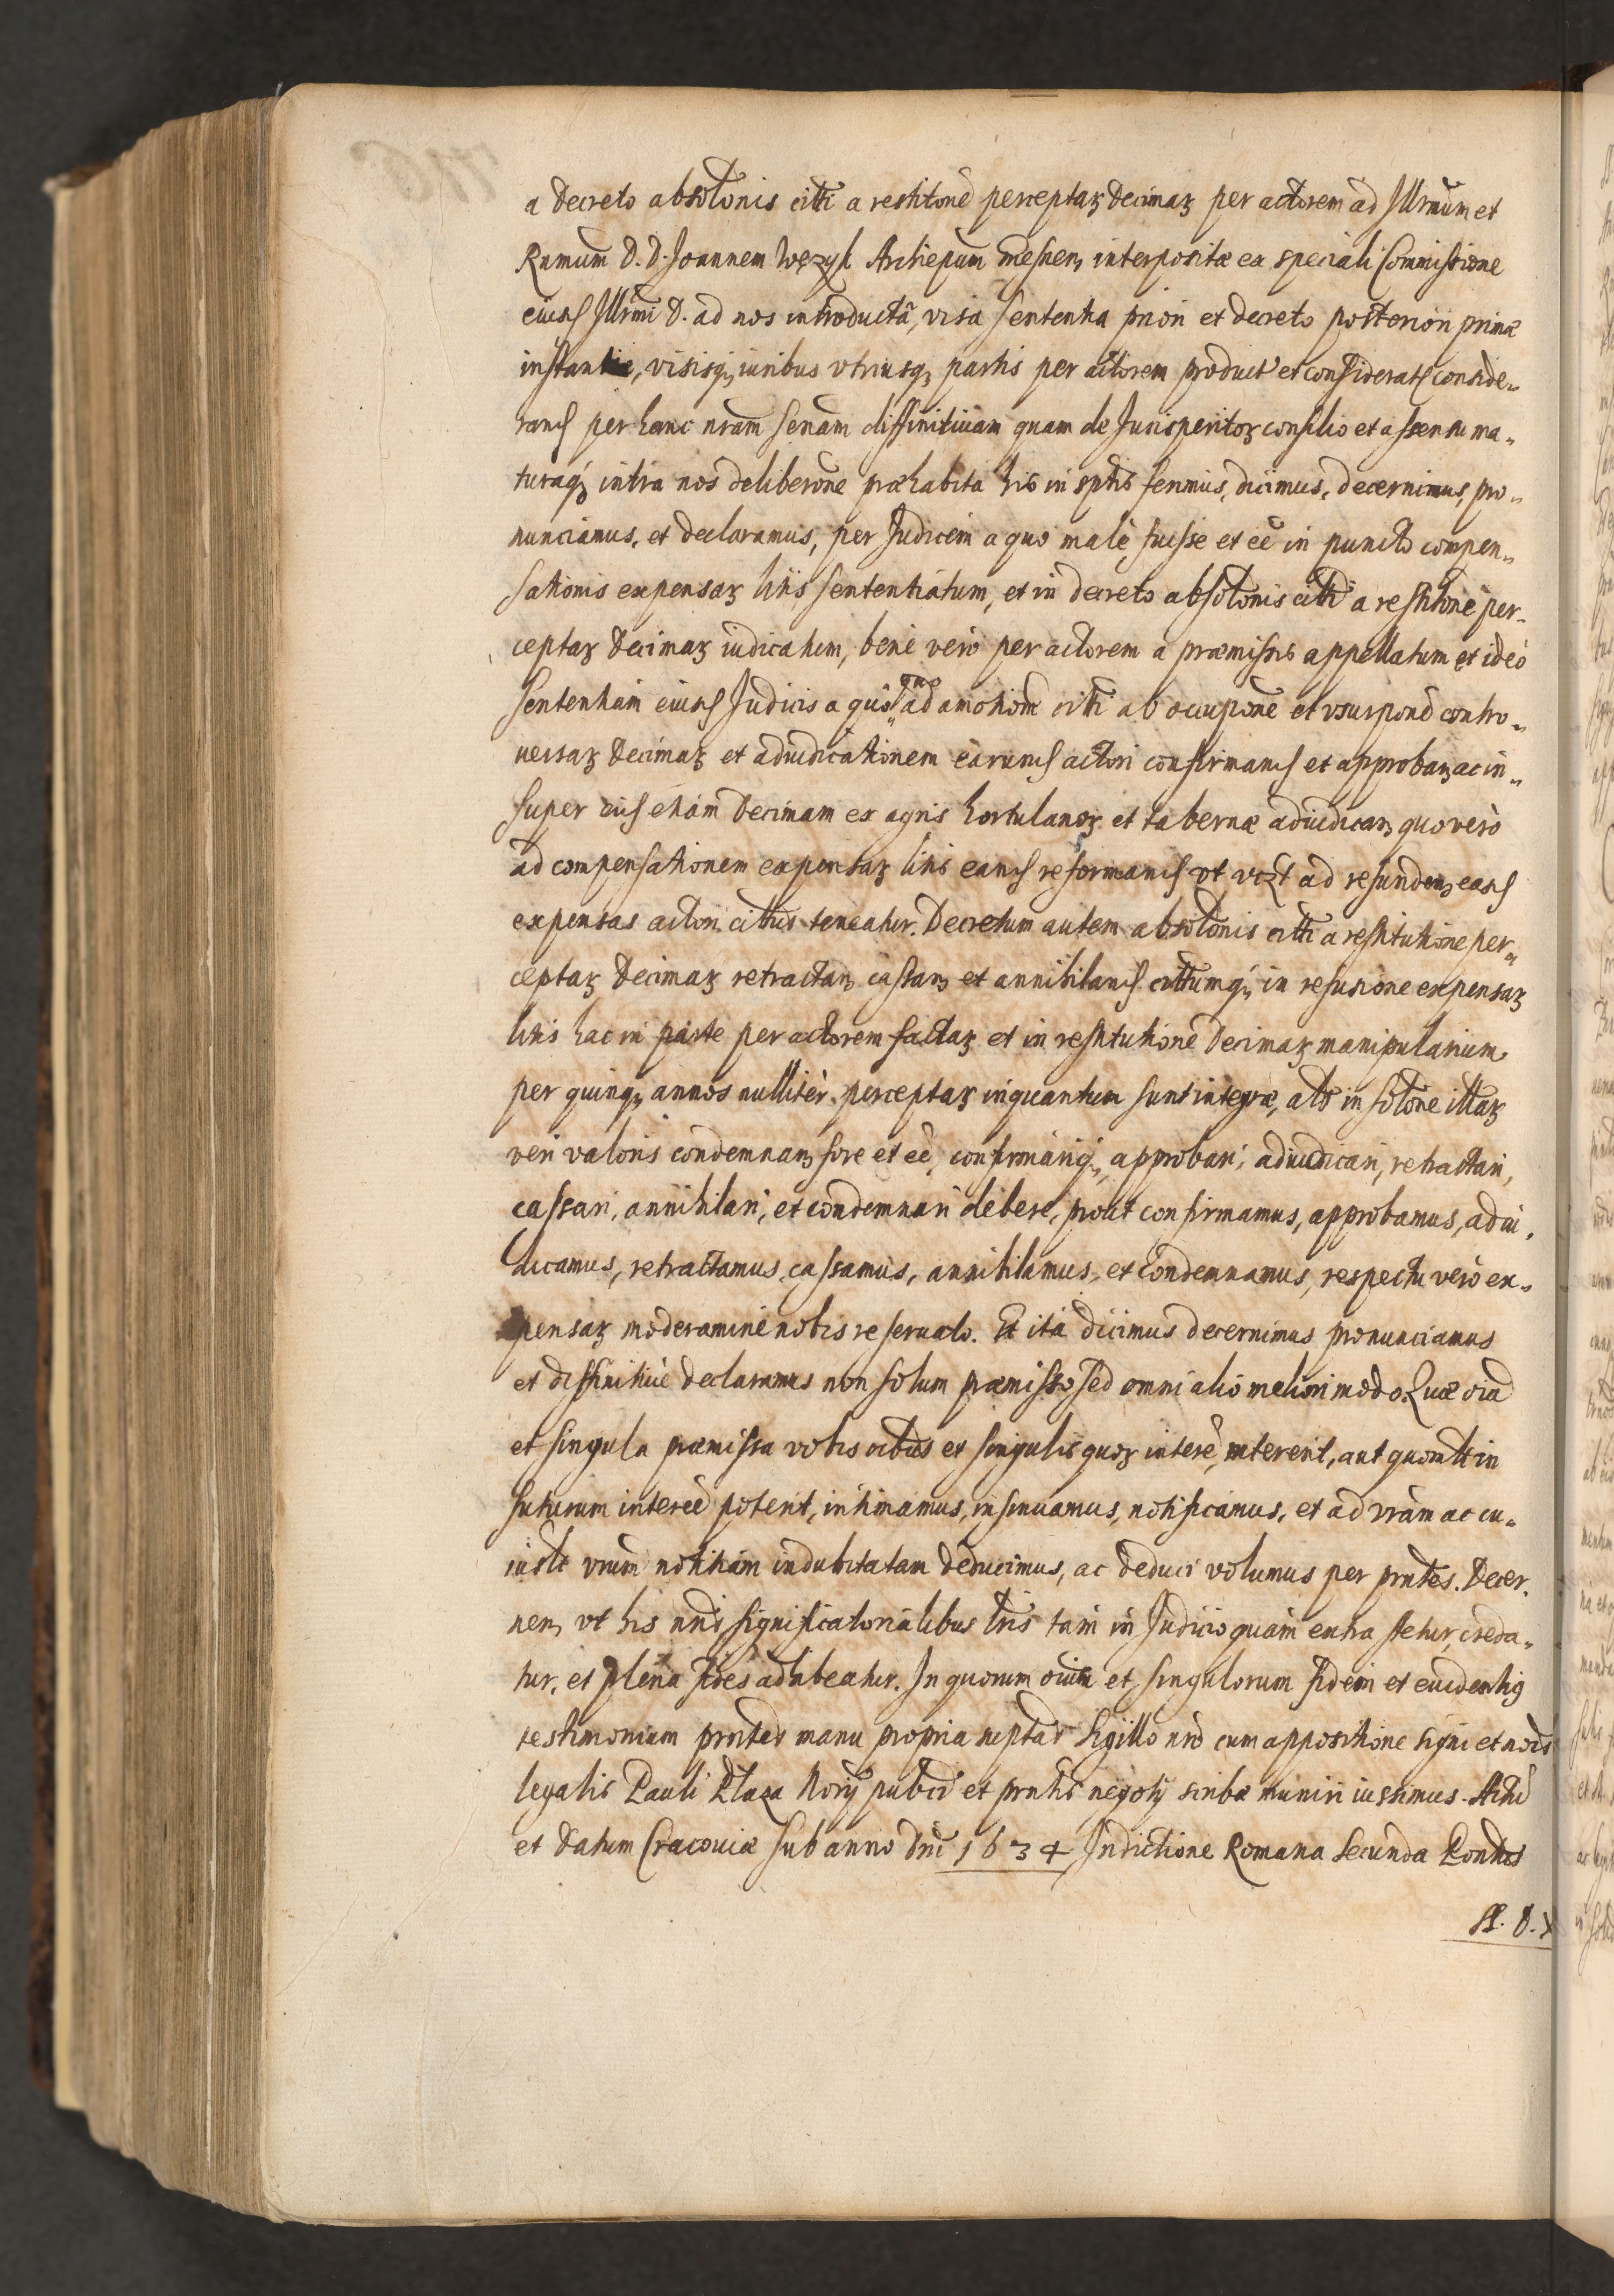 a Decreto absoltonis citti a restitone perceptaꝝ Decimaꝝ per actorem ad Illrmum et
Rnmum D. D. Joannem Wężyk Archiepum Gnesnen, interpositæ ex speciali Commissione
eiusd Illrmi D. ad nos introducta, visa sententia priori et decreto posteriori primæ
instantiæ, visisq, iuribus vtriusq, partis per actorem product et consideratis conside„
rand per hanc nram senam diffinitiuam quam de Jurisperitoꝝ consilio et assensu ma„
turaq, intra nos deliberone præhabita his in sptis ferimus, dicimus, decernimus, pro„
nunciamus, et declaramus, per Judicem a quo malè fuisse et eē in puncto compen„
sationis expensaꝝ litis sententiatum, et in decreto absoltonis citti a restitone per„
ceptaꝝ Decimaꝝ iudicatum, benè verò per actorem a præmissis appellatum et ideò
sententiam eiusd Judicis a quo quo ad amotione citti ab occupone et vsurpone contro„
uersaꝝ Decimaꝝ et adiudicationem earund actori confirmand et approban, ac in„
super eid etiam Decimam ex agris hortulanoꝝ et tabernæ adiudican, quo verò
ad compensationem expensaꝝ litis eand reformand vt vizt ad refunden, easd
expensas actori cittus teneatur. Decretum autem absoltonis citti a restitutione per„
ceptaꝝ Decimaꝝ retractan, cassan, et annihiland cittumq, in refusione expensaꝝ
litis hac in parte per actorem factaꝝ et in restitutione Decimaꝝ manipularium
per quinq, annos nullitèr perceptaꝝ inquantum sunt integræ, alt in soltone illaꝝ
veri valoris condemnan, fore et eē, confirmariq, approbari, adiudicari, retractari,
cassari, annihilari, et condemnari debere, prout confirmamus, approbamus, adiu„
dicamus, retractamus, cassamus, annihilamus, et condemnamus, respectu verò ex„
pensaꝝ moderamine nobis reseruato. Et ita dicimus decernimus pronunciamus
et diffinitiuè declaramus non solum præmisso, sed omni alio meliori modo. Quæ oia
et singula præmissa vobis oibus et singulis quoꝝ interē, intererit, aut quomlt in
futurum intereē poterit, intimamus, insinuamus, notificamus, et ad vram ac cu„
iuslt vrum notitiam indubitatam deducimus, ac deduci volumus per prntes. Decer„
nen, vt his nris significatorialibus lris tam in Judicio quàm extra stetur, creda„
tur, et plena fides adhibeatur. In quorum oium et singulorum fidem et euidentis
testimonium prntes manu propria supta Sigillo nro cum appositione signi et nois
legalis Pauli Plaza Norij publici et prntis negotij scribæ muniri iussimus. Actu
et Datum Cracouiæ sub anno Dni 1634 Indictione Romana secunda Pontus